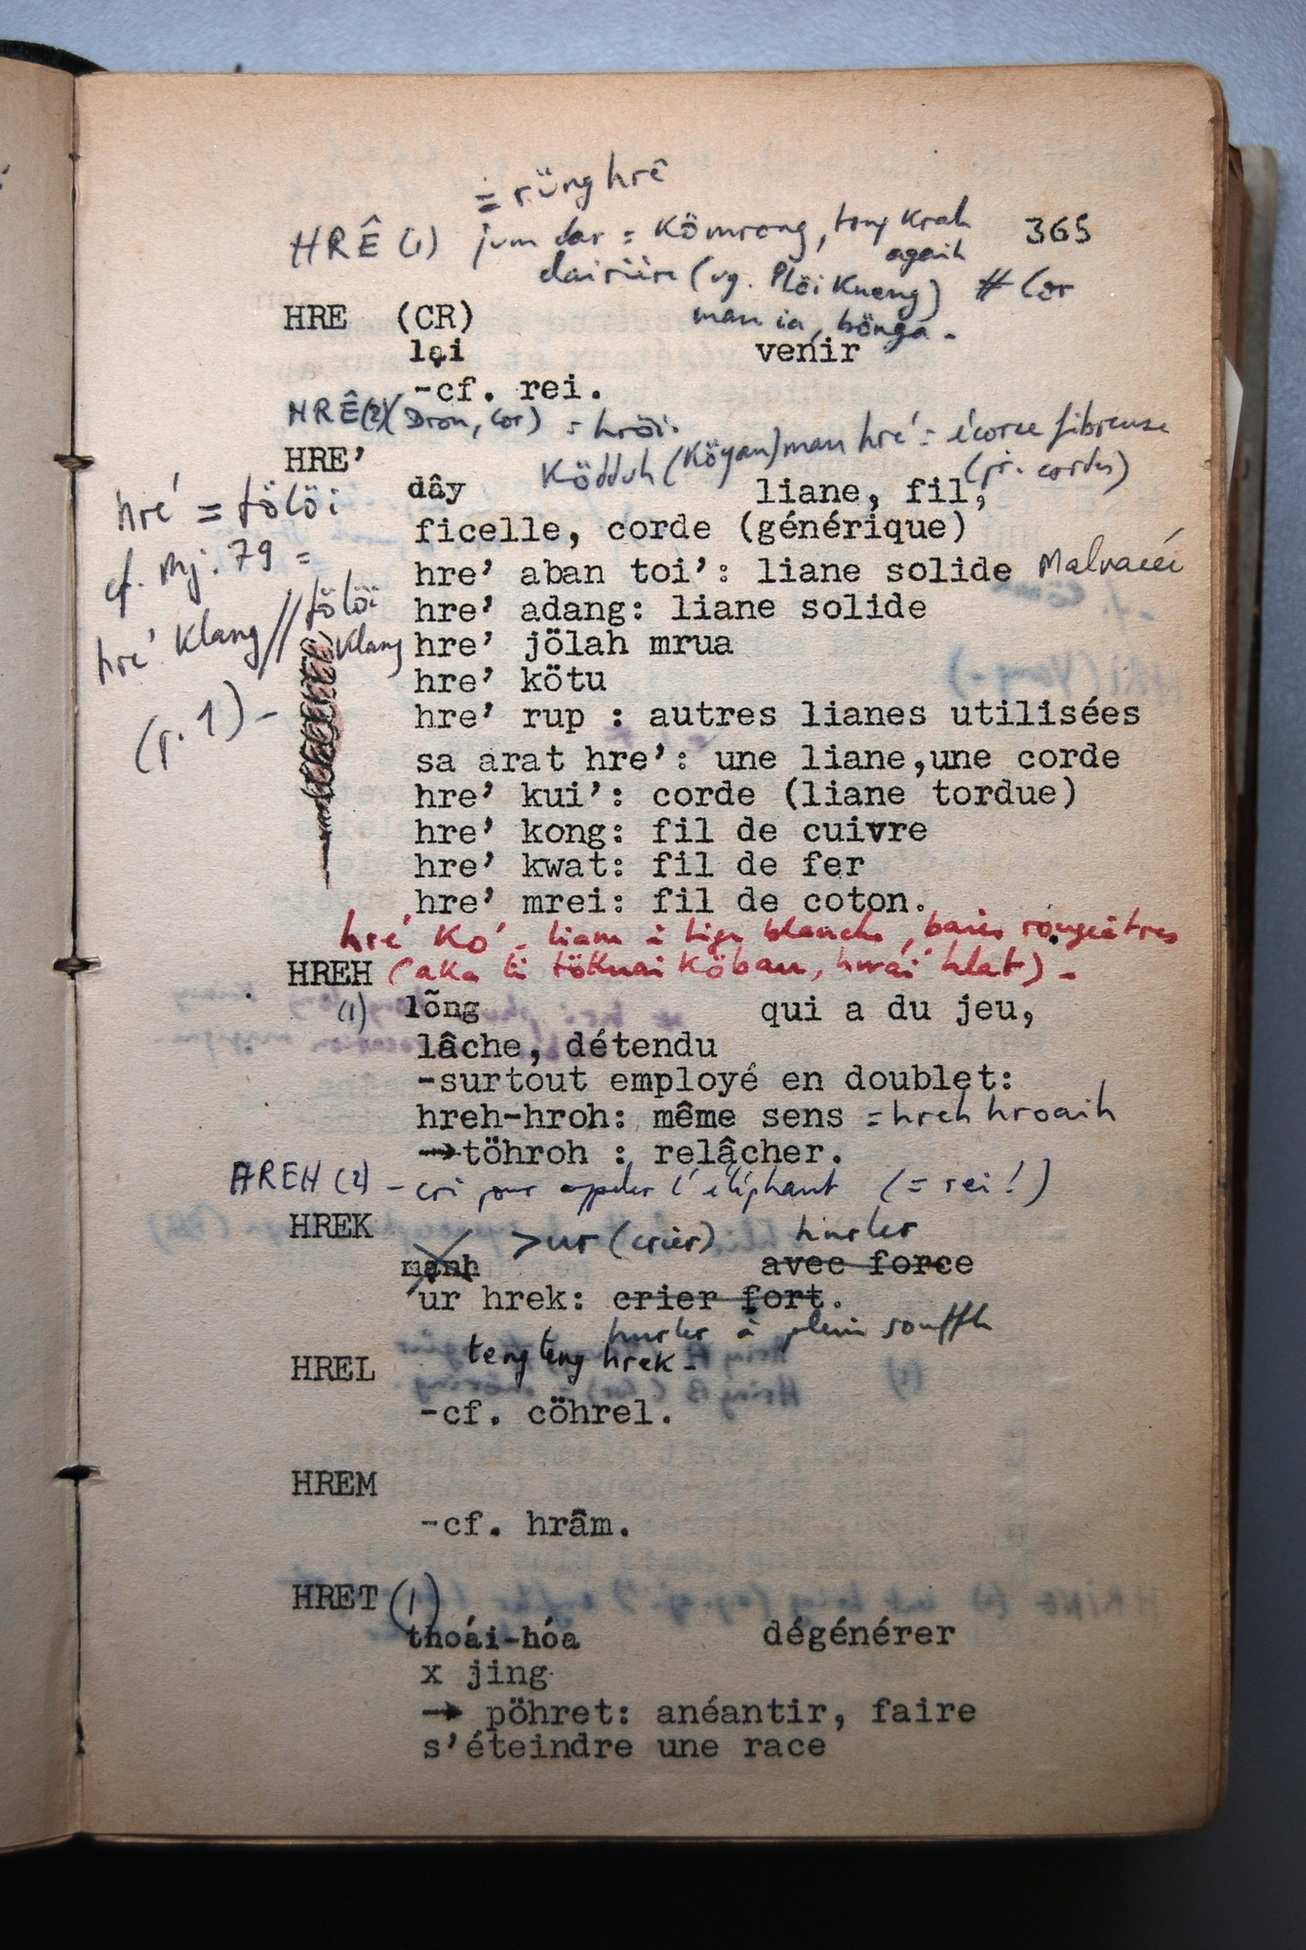 = rüng hrê
HRÊ (1) jum dar = Kömrong, tong Krah 365
agaih
clairière (vg. Plöi Kueng) # Cor
HRE (CR) man ia, bönga -
lại venir
-cf. rei.
HRÊ (2) (Dron, Cor) = hröi.
Ködduh (Köyau) man hré = écorce fibreuse
HRE’ (pr. cordes)
dây liane, fil,
hré = tölöi
ficelle, corde (générique)
cf. Mj. 79 =
hre’ aban toi’: liane solide Malvacée
hré Klang // tölöi Klang
hre’ adang: liane solide
hre’ jölah mrua
hre’ kötu
(p. 1) -
hre’ rup : autres lianes utilisées
sa arat hre’: une liane,une corde
hre’ kui’: corde (liane tordue)
hre’ kong: fil de cuivre
hre’ kwat: fil de fer
hre’ mrei: fil de coton.
hré Ko’ - liane à tige blanche, baies rougeâtres
HREH (aka li töknai Köbau, hwai hlat) -
(1) lõng qui a du jeu,
lâche, détendu
-surtout employé en doublet:
hreh-hroh: même sens = hreh hroaih
→töhroh : relâcher.
HREH (2) - cri pour appeler l'éléphant (= rei !)
HREK > ur (crier) hurler
mạnh avec force
ur hrek: crier fort.
hurler à plein souffle
HREL teng teng hrek -
-cf. cöhrel.
HREM
-cf. hrâm.
HRET (1)
thoái-hóa dégénérer
x jing
→ pöhret: anéantir, faire
s’éteindre une race